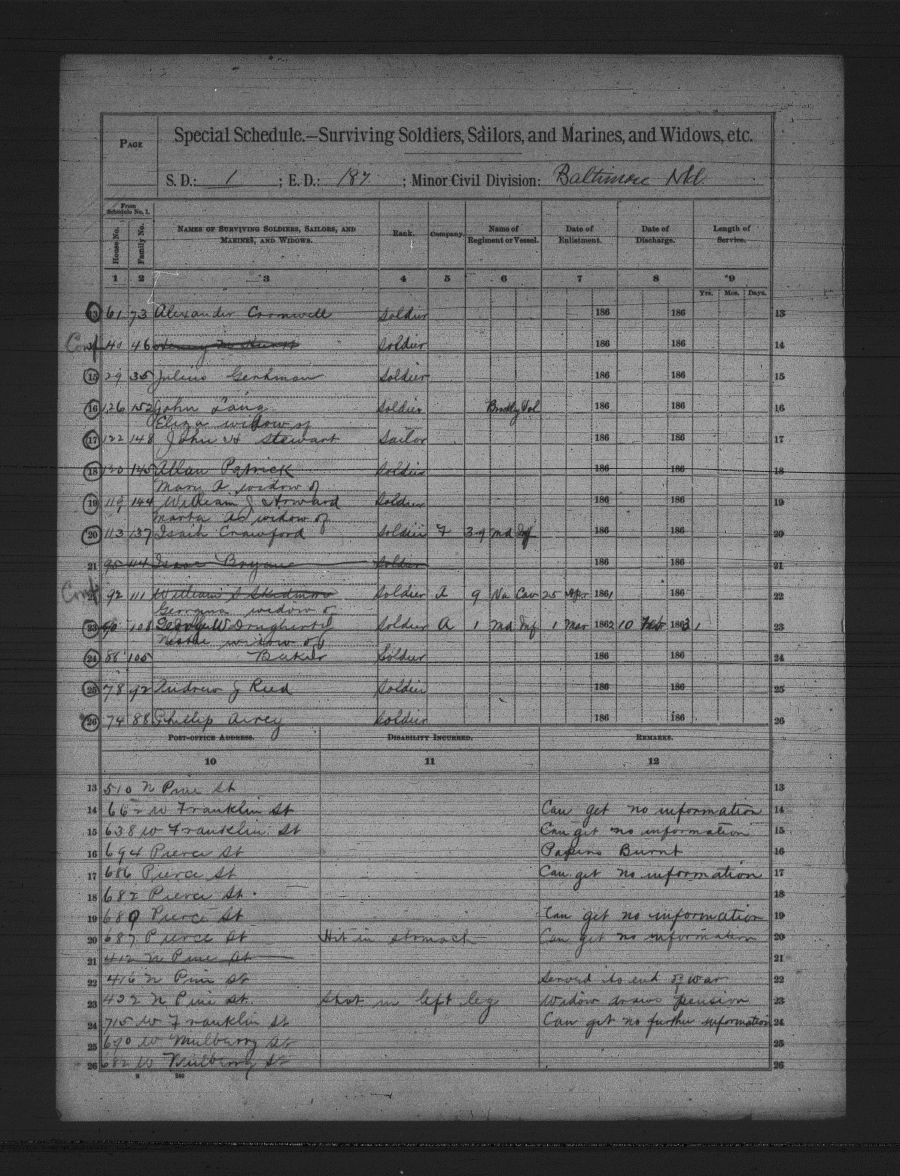 PAGE
Special Schedule.—Surviving Soldiers, Sailors, and Marines, and Widows, etc.
S. D.: 1 ; E. D.: 187 ; Minor Civil Division: Baltimore Md.
From Schedule No. 1.
House No. Family No. NAMES OF SURVIVING SOLDIERS, SAILORS, AND MARINES, AND WIDOWS. Rank. Company. Name of Regiment or Vessel. Date of Enlistment. Date of Discharge. Length of Service.
1 2 3 4 5 6 7 8 9
Yrs. Mos. Days.
13 61 73 Alexander Cromwell Soldier 186 186 13
Conf 40 46 Soldier 186 186 14
15 29 35 Julius Gerhman Soldier 186 186 15
16 126 152 John Lang Soldier Vol 186 186 16
Eliza widow of
17 122 148 John H Stewart Sailor 186 186 17
18 120 145 Allan Patrick Soldier 186 186 18
Mary A widow of
19 119 144 William J Howard Soldier 186 186 19
Marta A widow of
20 113 137 Isaih Crawford Soldier F 39 Md Inf 186 186 20
Isaac Soldier 186 186 21
Conf 92 111 William S Soldier I 9 Va Cav 25 Apr 1861 186 22
Georgina widow of
23 90 108 George W Dougherty Soldier A 1 Md Inf 1 Mar 1862 10 Feb 1863 1 23
widow of
24 86 105 Baker Soldier 186 186 24
25 78 92 Andrew J Reed Soldier 186 186 25
26 74 88 Phillip Airey Soldier 186 186 26
POST-OFFICE ADDRESS. DISABILITY INCURRED. REMARKS.
10 11 12
13 510 N Pine St 13
14 662 W Franklin St Can get no information 14
15 638 W Franklin St Can get no information 15
16 694 Pierce St Papers Burnt 16
17 686 Pierce St Can get no information 17
18 682 Pierce St 18
19 680 Pierce St Can get no information 19
20 687 Pierce St Hit in stomach Can get no information 20
21 412 N Pine St 21
22 416 N Pine St Served to end of war 22
23 422 N Pine St Shot in left leg Widow draws pension 23
24 715 W Franklin St Can get no further information 24
25 690 W Mulberry St 25
26 682 W Mulberry St 26